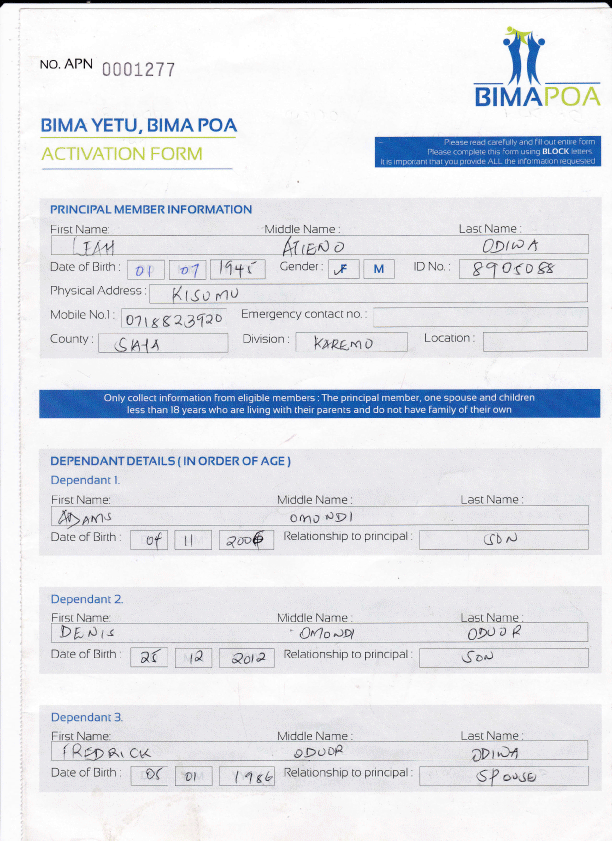 NO. APN 0001277
BIMAPOA
BIMA YETU, BIMA POA
ACTIVATION FORM
Please read carefully and fill out entire form
Please complete this form using BLOCK letters.
It is important that you provide ALL the information requested
PRINCIPAL MEMBER INFORMATION
First Name: Middle Name : Last Name :
ATIENO ODIWA
Date of Birth : 01 07 1945 Gender : F M ID No. : 8905088
Physical Address : KISUMU
Mobile No.1 : 0718823920 Emergency contact no. :
County : SAYA Division : KAREMO Location :
Only collect information from eligible members : The principal member, one spouse and children
less than 18 years who are living with their parents and do not have family of their own
DEPENDANT DETAILS ( IN ORDER OF AGE )
Dependant 1.
First Name: Middle Name : Last Name :
ADAMS OMONDI
Date of Birth : 04 11 2006 Relationship to principal : SON
Dependant 2.
First Name: Middle Name : Last Name :
DENIS OMONDI ODUOR
Date of Birth : 25 12 2012 Relationship to principal : SON
Dependant 3.
First Name: Middle Name : Last Name :
FREDRICK ODUOR ODIWA
Date of Birth : 05 01 1986 Relationship to principal : SPOUSE